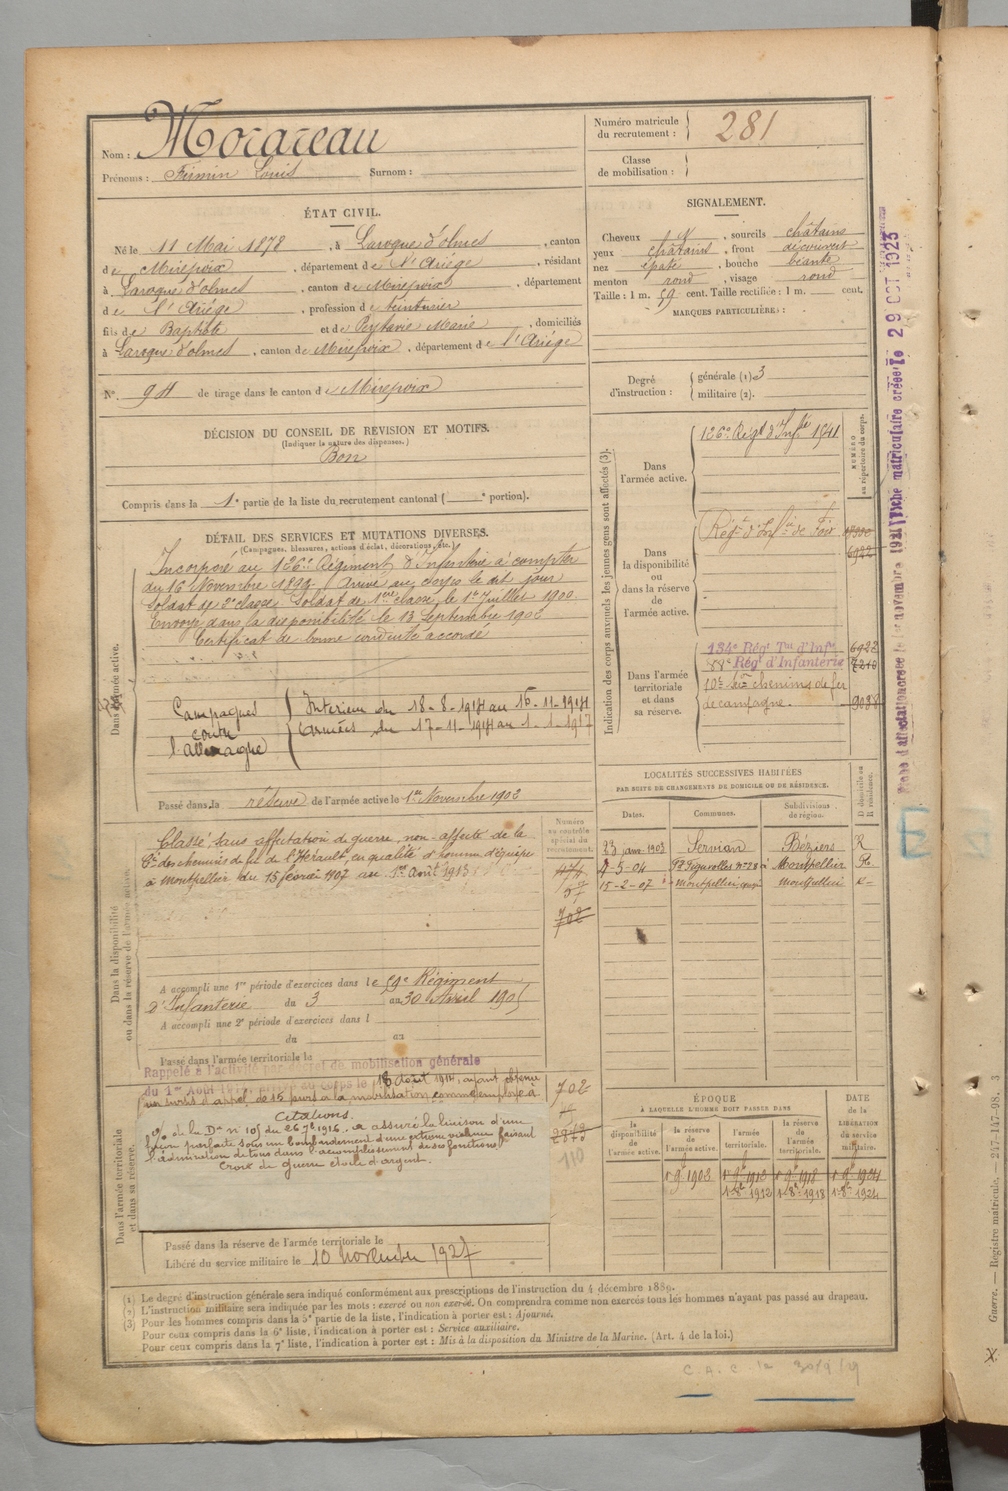 Nom : Morareau
Prénoms : Firmin Louis Surnom :
Numéro matricule du recrutement : 281
Classe de mobilisation :
ÉTAT CIVIL.
Né le 11 Mai 1878, à Laroque d'olmes, canton
de Mirepoix, département de l'Ariége, résidant
à Laroque d'olmes, canton de Mirepoix, département
de l'Ariége, profession de teinturier
fils de Baptiste et de Peytavie Marie, domiciliés
à Laroque d'olmes, canton de Mirepoix, département de l'Ariége
No. 94 de tirage dans le canton de Mirepoix
DÉCISION DU CONSEIL DE REVISION ET MOTIFS.
(Indiquer la nature des dispenses.)
Bon
Compris dans la 1e partie de la liste du recrutement cantonal ( e portion).
SIGNALEMENT.
Cheveux , sourcils châtains
yeux châtains, front découvert
nez épaté, bouche béante
menton rond, visage rond
Taille : 1 m. 59 cent. Taille rectifiée : 1 m. cent.
MARQUES PARTICULIÈRES :
Degré d'instruction : générale (1) 3
militaire (2).
DÉTAIL DES SERVICES ET MUTATIONS DIVERSES.
(Campagnes, blessures, actions d'éclat, décorations, etc.)
Dans l'armée active.
Incorporé au 126e Régiment d'Infanterie à compter
du 16 Novembre 1899. Arrivé au corps le dit jour
Soldat de 2e classe. Soldat de 1ère classe le 1er Juillet 1900.
Envoyé dans la disponibilité le 13 Septembre 1902
Certificat de bonne conduite accordé
Campagnes contre l'allemagne
Intérieur du 18-8-1914 au 16-11-1914
Armées du 17-11-1914 au 1-1-1917
Passé dans la réserve de l'armée active le 1er Novembre 1902
Indication des corps auxquels les jeunes gens sont affectés (3).
NUMÉRO au répertoire du corps.
Dans l'armée active.
126e Régt d'Inf. 1941
Dans la disponibilité ou dans la réserve de l'armée active.
Régt d'Infie de Foix
6922
Dans l'armée territoriale et dans sa réserve.
134e Régt Tal d'Infie 6922
88e Régt d'Infanterie 7210
10e son chemins de fer
de campagne. 9088
Dans la disponibilité ou dans la réserve de l'armée active.
Classé sans affectation de guerre, non-affecté de la
Cie des chemins de fer de l'Hérault, en qualité d'homme d'équipe
à Montpellier du 15 février 1907 au 1er Août 1913.
A accompli une 1re période d'exercices dans le 59e Régiment
d'Infanterie du 3 au 30 Avril 1905
A accompli une 2e période d'exercices dans l
du au
Passé dans l'armée territoriale le
Numéro au contrôle spécial du recrutement.
702
702
110
LOCALITÉS SUCCESSIVES HABITÉES
PAR SUITE DE CHANGEMENTS DE DOMICILE OU DE RÉSIDENCE.
Dates. Communes. Subdivisions de région. D domicile ou R résidence.
23 janv 1903 Servian Béziers R
7-5-04 Montpellier R
15-2-07 Montpellier Montpellier R
Dans l'armée territoriale et dans sa réserve.
Rappelé à l'activité par décret de mobilisation générale
du 1er Août 1914, arrivé au corps le 18 août 1914, ayant obtenu
un sursis d'appel de 15 jours à la mobilisation comme employé à
Citations.
O/ de la Dn n° 105 du 26 7e 1916. a assuré la liaison d'une
façon parfaite sous un bombardement d'une extrême violence faisant
l'admiration de tous dans l'accomplissement de ses fonctions.
Croix de guerre étoile d'argent.
Passé dans la réserve de l'armée territoriale le
Libéré du service militaire le 10 novembre 1927
ÉPOQUE
À LAQUELLE L'HOMME DOIT PASSER DANS
la disponibilité de l'armée active. la réserve de l'armée active. l'armée territoriale. la réserve de l'armée territoriale.
DATE de la LIBÉRATION du service militaire.
1er 9bre 1902 1er 9bre 1912 1er 9bre 1918 1er 9bre 1924
1er 8bre 1912 1er 8bre 1918 1er 8bre 1924
(1) Le degré d'instruction générale sera indiqué conformément aux prescriptions de l'instruction du 4 décembre 1889.
(2) L'instruction militaire sera indiquée par les mots : exercé ou non exercé. On comprendra comme non exercés tous les hommes n'ayant pas passé au drapeau.
(3) Pour les hommes compris dans la 5e partie de la liste, l'indication à porter est : Ajourné.
Pour ceux compris dans la 6e liste, l'indication à porter est : Service auxiliaire.
Pour ceux compris dans la 7e liste, l'indication à porter est : Mis à la disposition du Ministre de la Marine. (Art. 4 de la loi.)
C.A.C
Fiche matriculaire créée le 29 OCT 1925
Guerre. — Registre matricule. — 247-147-98. 3